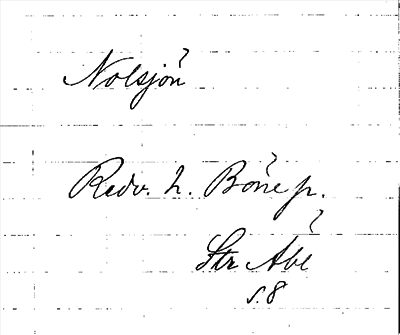 Nolsjön
Redv. h. Böne p.
Str Åbe
s. 8